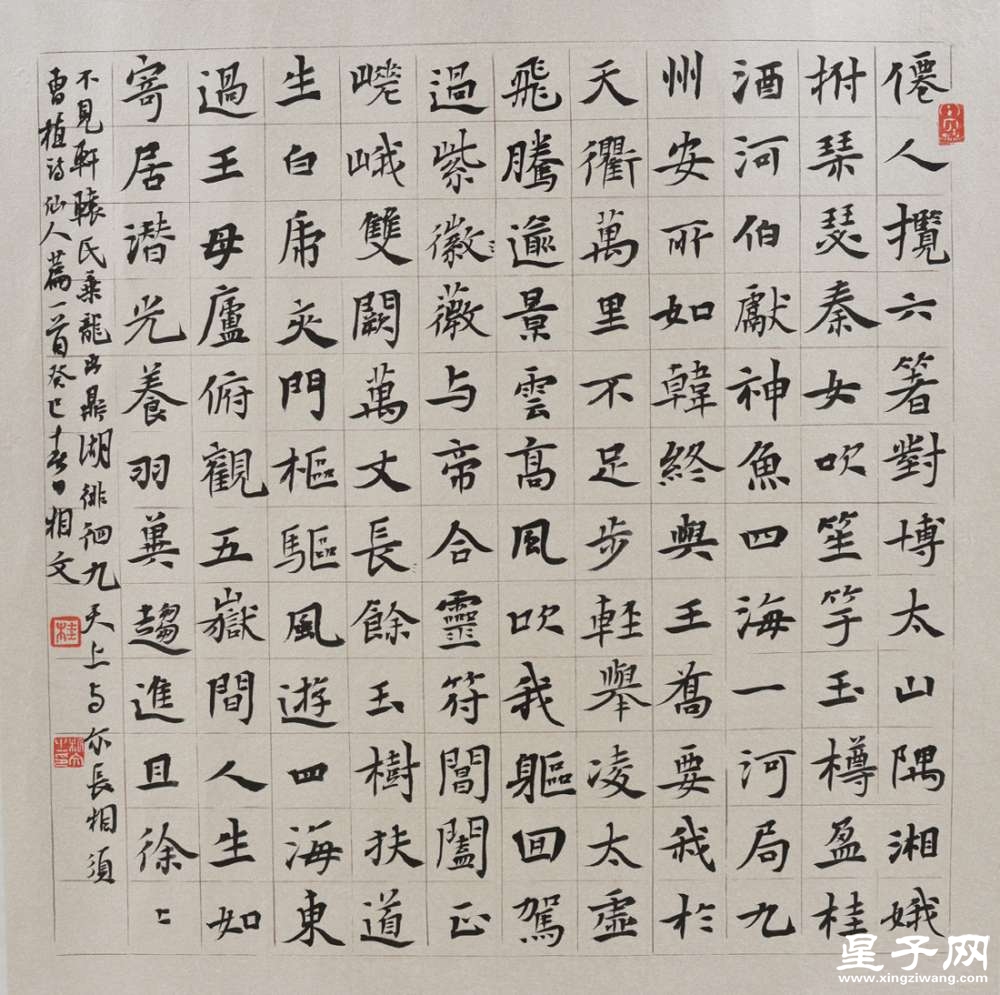 僊人攬六箸對博太山隅湘娥
拊琴瑟秦女吹笙竽玉樽盈桂
酒河伯獻神魚四海一河局九
州安所如韓終與王喬要我於
天衢萬里不足步輕舉凌太虛
飛騰逾景雲高風吹我軀回駕
過紫徽薇与帝合靈符閶闔正
嶢峨雙闕萬丈長餘玉樹扶道
生白虎夾門樞驅風遊四海東
過王母廬俯觀五嶽間人生如
寄居潛光養羽翼趨進且徐〻
不見軒轅氏乘龍出鼎湖徘徊九天上与尔長相須
曹植詩仙人篇一首癸巳十春日相文
星子网
www.xingziwang.com